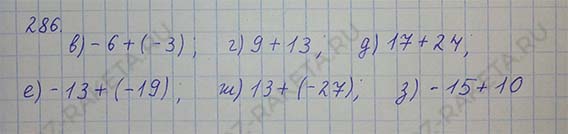 286.
в) -6 + (-3); г) 9 + 13; д) 17 + 24;
е) -13 + (-19); ж) 13 + (-27); з) -15 + 10